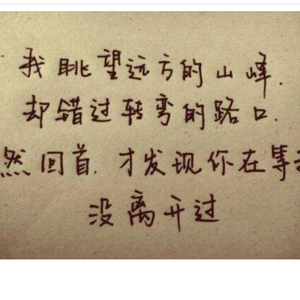 我眺望远方的山峰.
却错过转弯的路口
然回首.才发现你在等
没离开过